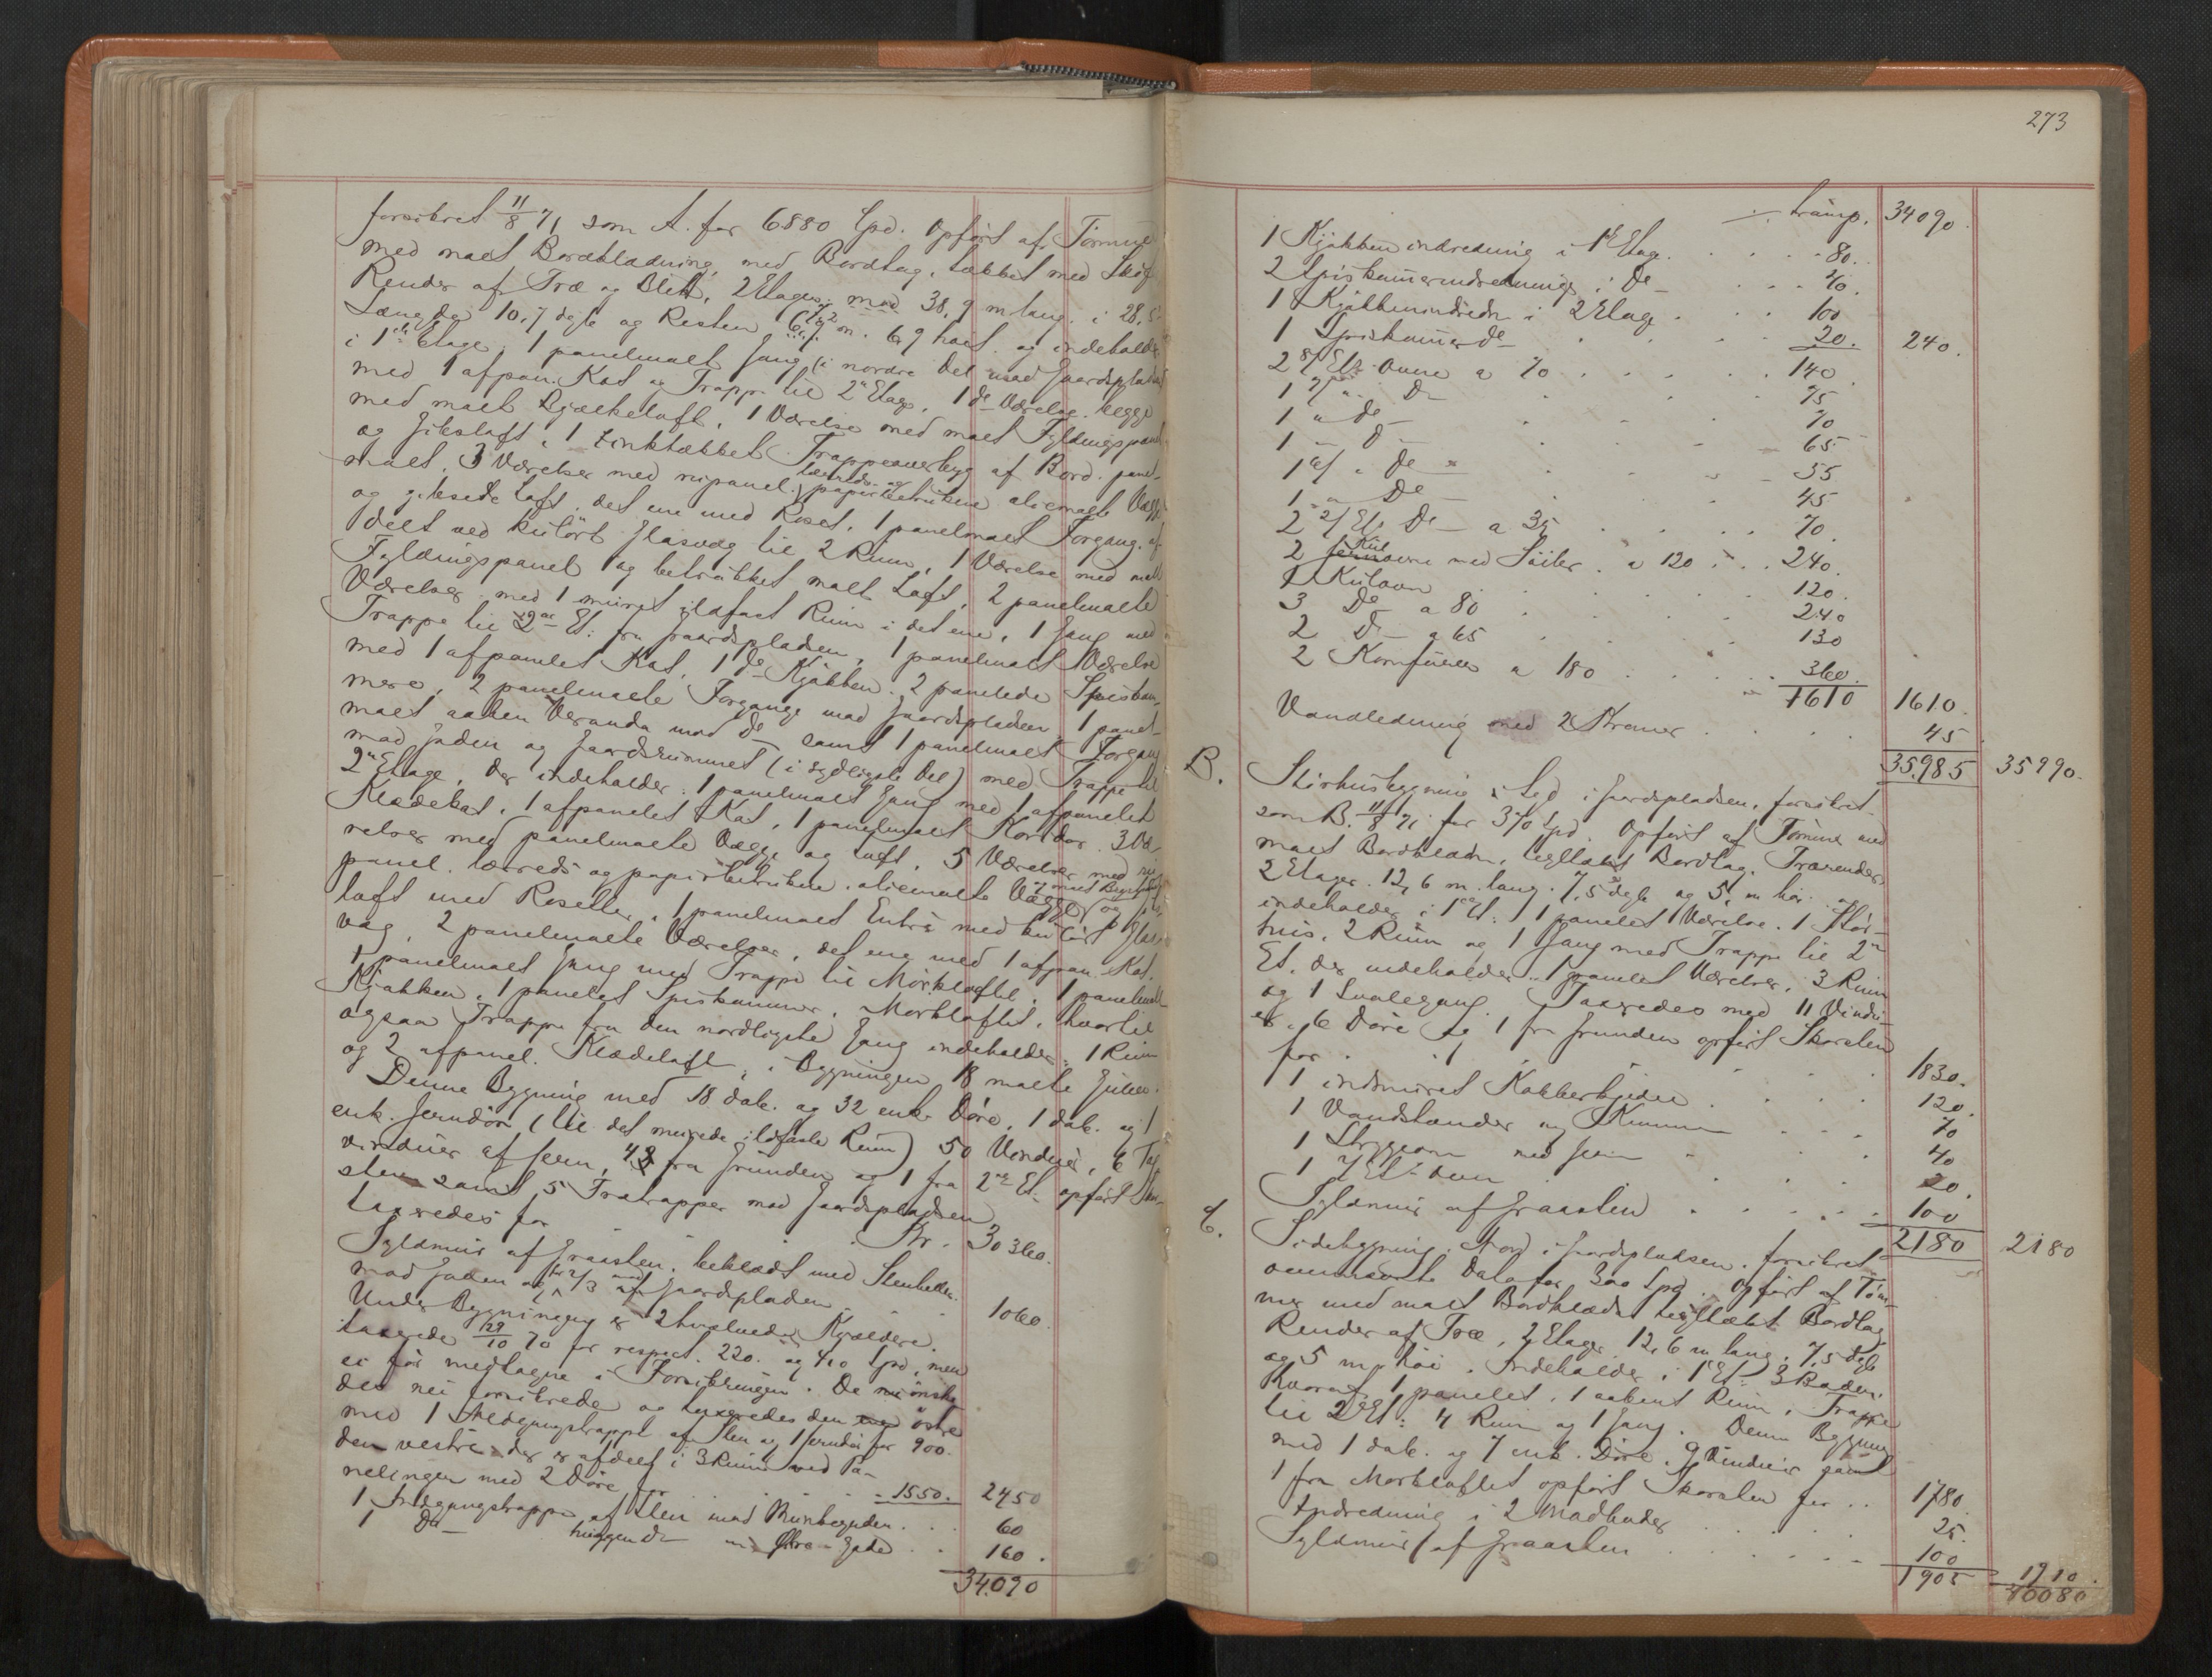 forsikret 11/8 71 som A. for 6880 Spd. Opført af Tømmer
med malt Bordklædning, med Bordtag, tækket med Skif.
Render af Træ og Blik, 2 Etages, mod 38,9 m lang. i 28,5
Længde 10,7 dyb og Resten 7,2 m. 6,9 høit og indeholder
i 1ste Etage: 1 panelmalt Gang (i nordre Del mod Gaardspladsen)
med 1 afpan. Kot og Trappe til 2n Etage, 1 do Værelse, begge
med malt Bjælkeloft, 1 Værelse med malt Fyldningspanel
og Gibsloft, 1 zinktækket Trappeoverbyg af Bord. panel-
malt, 3 Værelser med ripanel. lærreds- og papirbetrukne oliemalte Vægge
og gibsede Loft, det ene med Roset, 1 panelmalt Forgang, af-
delt ved kulørt Glasvæg til 2 Rum, 1 Værelse med malt
Fyldningspanel og betrukket malt Loft, 2 panelmalte
Værelser med 1 muret ildfast Rum i det ene, 1 Gang med
Trappe til 2den Et: fra Gaardspladsen, 1 panelmalt Værelse
med 1 afpanelet Kot, 1 do Kjøkken, 2 panelede Spiskam-
mere, 2 panelmalte Forgange mod Gaardspladsen 1 panel-
malt aaben Veranda mod do samt 1 panelmalt Forgang
mod Gaden og Gaardsrummet (i sydligste Del) med Trappe til
2n Etage, der indeholder: 1 panelmalt Gang med 1 afpanelet
Klædekot, 1 afpanelet Kot, 1 panelmalt Korridor. 3 Væ-
relser med panelmalte Vægge og Loft, 5 Værelser med ri-
panel. lærreds og papirbetrukne oliemalte Vægge og
loft med Rosetter, 1 panelmalt Entré med kulørt Glas-
væg, 2 panelmalte Værelser, det ene med 1 afpan. Kot.
1 panelmalt Gang med Trappe til Mørkloftet, 1 panelmalt
Kjøkken, 1 panelet Spiskammer. Mørkloftet, hvortil
ogsaa Trappe fra den nordligste Gang indeholder: 1 Rum
og 2 afpanel. Klædeloft, i Bygningen 18 malte Gulve.
Denne Bygning med 18 dob. og 32 enk. Døre, 1 dob. og 1
enk. Jerndør (til det murede ildfaste Rum) 50 Vinduer, 6 Tag
vinduer af Jern, 4 fra Grunden og 1 fra 2den Et. opført Skor-
sten samt 5 Trætrapper mod Gaardspladsen
taxeredes for . . . Kr. 30360.
Syldmur af Graasten, beklædt med Stenheller
mod Gaden og til 2/3 mod Gaardspladsen . . . 1060.
Under Bygningen er 2 hvælvede Kjældere,
taxerede 29/10 70 for respect. 220. og 410 Spd, men
ei før medtagne i Forsikringen. De ønske-
des nu forsikrede og taxeredes den østre
med 1 Nedgangstrappe af Sten og 1 Jerndør for 900.
den vestre der er afdelt i 3 Rum ved Pa-
nelingen med 2 Døre for . . . 1550. 2450
1 Nedgangstrappe af Sten mod Munkegaden . . . 60
1 Do huggen do m. Øvre-Gade . . . 160.
34.090
273
transp. 34090
1 Kjøkkenindredning i 1te Etag. . . . 80.
2 Spiskammerindrednings i Do . . . 40.
1 Kjøkkenindredn. i 2 Etage . . . 100
1 Spiskammer do . . . 20. 240.
2 8/ Etg. Ovne a 70 . . . 140
1 7/ " Do . . . 75
1 " do . . . 70
1 - D . . . 65
1 6/ " De " . . . 55
1 " De . . . 45
2 2/ Et. De - a 35 . . . 70
2 Kulovne med Søiler. a 120 . . . 240.
1 Kulovn . . . 120.
3 De a 80 . . . 240
2 D - a 65 . . . 130
2 Komfurer a 180 . . . 360.
1610 1610.
Vandledning med 2 Kraner . . . 45
35.985 35990.
B. Størhusbygning i Syd i Gaardspladsen, forsikret
som B. 11/8 71 for 370 Spd. Opført af Tømmer med
malt Bordklædn., tegltækt Bordtag. Trærender
2 Etager. 12,6 m. lang. 7,5 dyb og 5, m høi. og
indeholder i 1ste Et: 1 panelet Værelse. 1 Stør-
hus, 2 Rum og 1 Gang med Trappe til 2n
Et. der indeholder: 1 panelet Værelse, 3 Rum
og 1 Svalegang. Taxeredes med 11 Vindu-
er, 6 Døre og 1 fra Grunden opført Skorsten
for . . . 1830.
1 indmuret Kobberkjedel . . . 120.
1 Vandstander og Kumme . . . 70
1 Strygeovn med Jern . . . 40
1 2 Et. Ovn . . . 20.
Syldmur af Graasten . . . 100
2180 2180
C. Sidebygning. Nord i Gaardspladsen, forsikret
ovennævnte Dato for 300 Spd. Opført af Tøm-
mer med malt Bordklædn. tegltækt Bordtag
Render af Træ, 2 Etager 12,6 m lang. 7,5 dyb
og 5 m. høi. Indeholder i 1ste Et: 3 Boder,
hvoraf 1 panelet, 1 aabent Rum, Trappe
til 2den Et: 4 Rum og 1 Gang. Denne Bygning
med 1 dob. og 7 enk. Døre. 9 Vinduer samt
1 fra Mørkloftet opført Skorsten for . . 1780.
Indredning i 2 Madboder . . . 25.
Syldmur af Graasten . . . 100
1905 1910.
40080